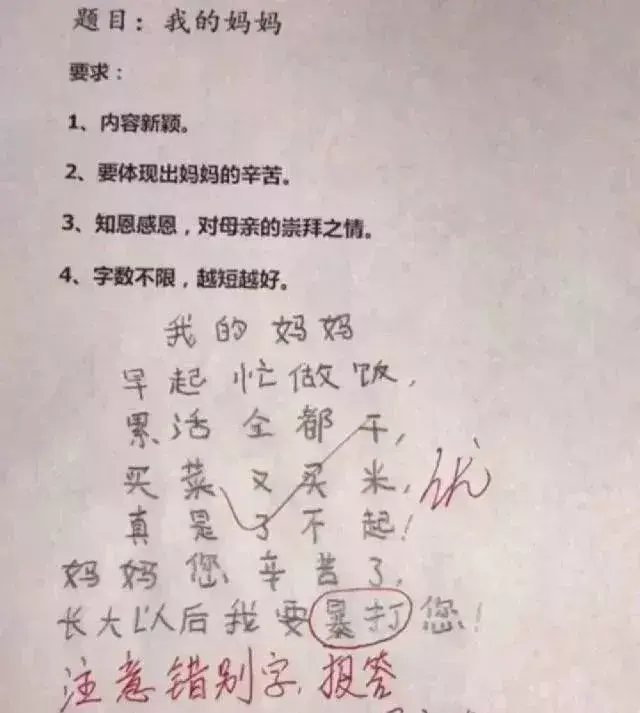 题目：我的妈妈
要求：
1、内容新颖。
2、要体现出妈妈的辛苦。
3、知恩感恩，对母亲的崇拜之情。
4、字数不限，越短越好。
我的妈妈
早起忙做饭，
累活全都干，
买菜又买米，
优
真是了不起！
妈妈您辛苦了，
长大以后我要暴打您！
注意错别字，报答